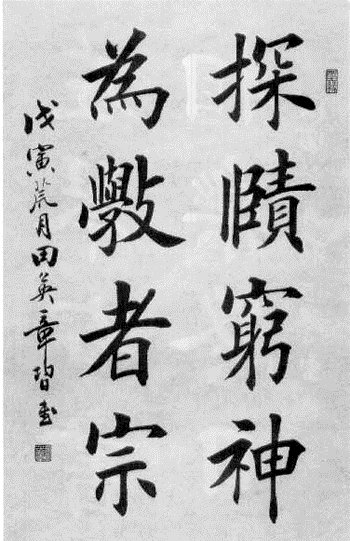 探賾窮神
為者宗
戊寅月田英章書